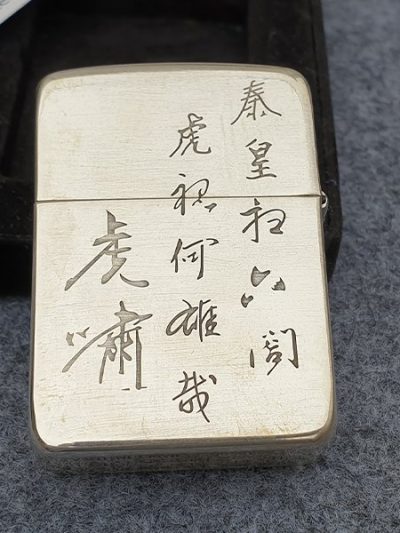 秦皇扫六閤
虎视何雄哉
虎嘯